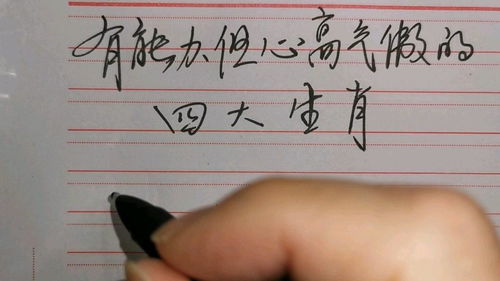 有能力但心高气假的
四大生肖